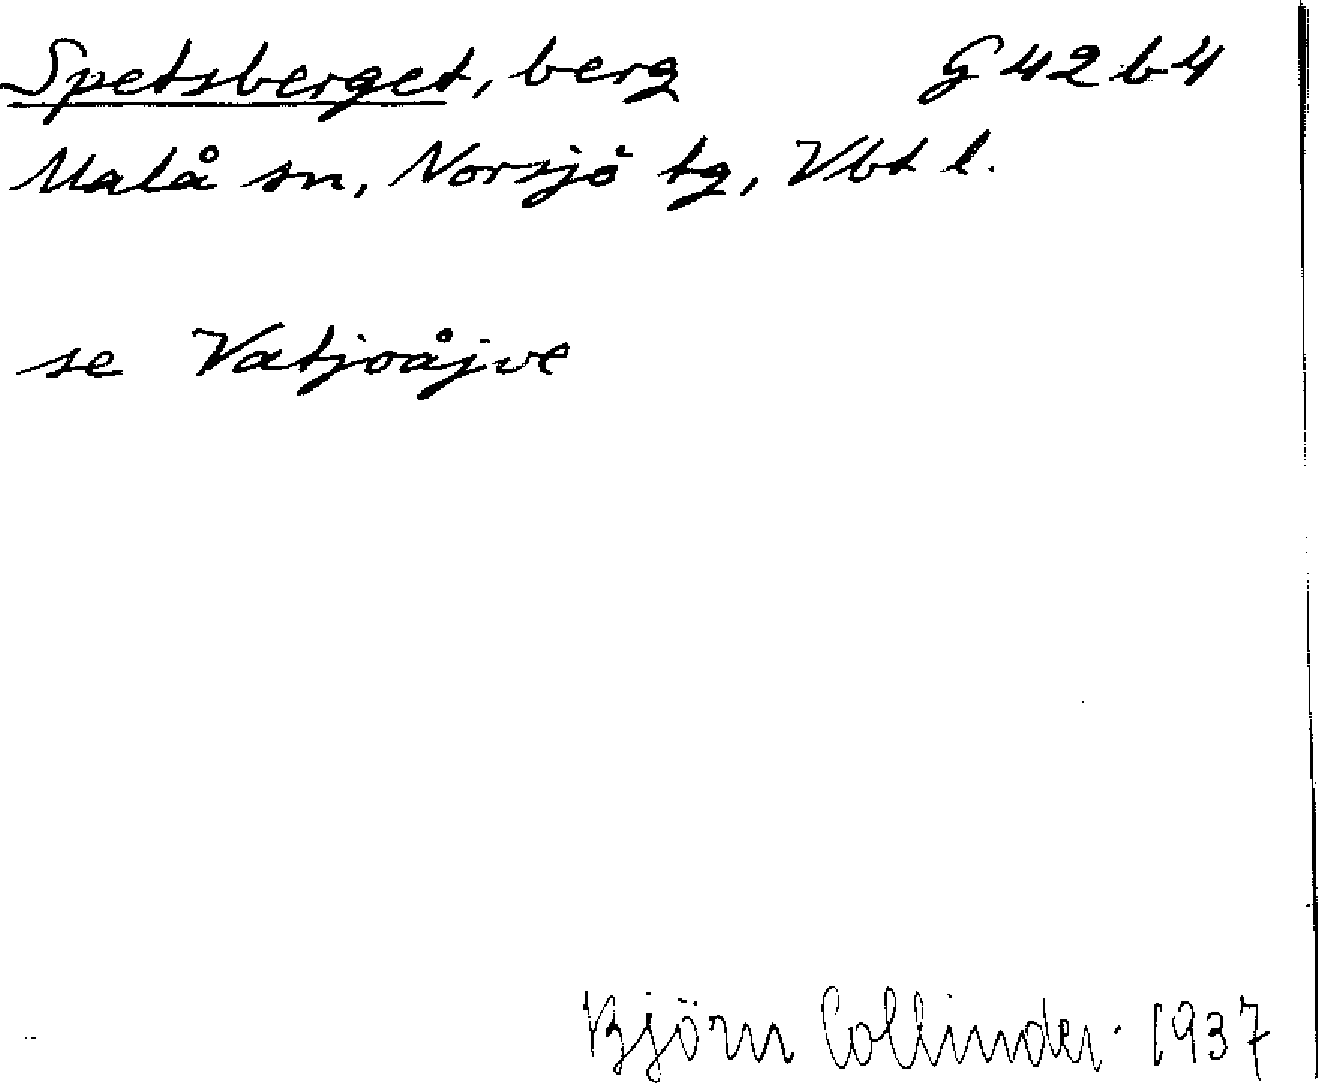 Spetsberget, berg G 42 b 4
Malå sn, Norsjö tg, Vbt l.
se Vatjoåjve
Björn Collinder 1937